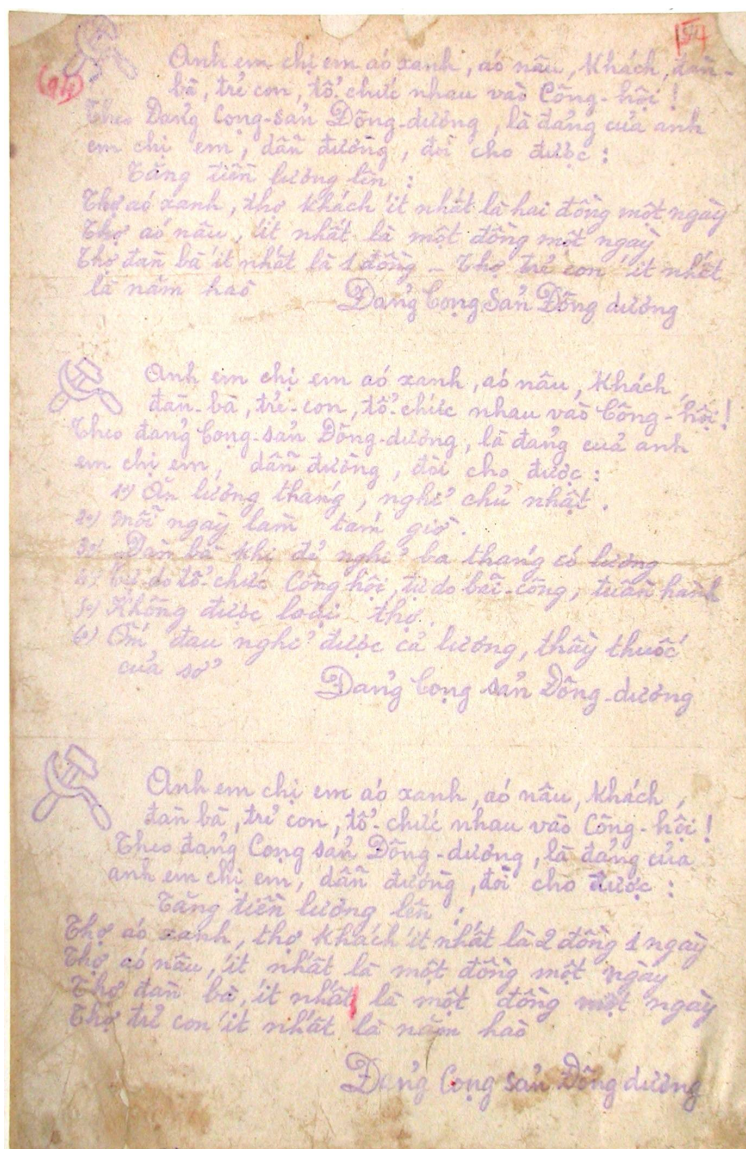 Anh em chị em áo xanh, áo nâu, Khách, đàn-
bà, trẻ con, tổ chức nhau vào Công-hội!
Theo Đảng Cọng-sản Đông-dương, là đảng của anh
em chị em, dẫn đường, đòi cho được:
Tăng tiền lương lên:
Thợ áo xanh, thợ Khách ít nhất là hai đồng một ngày
Thợ áo nâu, ít nhất là một đồng một ngày
Thợ đàn bà ít nhất là 1 đồng - Thợ trẻ con ít nhất
là năm hào
Đảng Cọng Sản Đông dương
Anh em chị em áo xanh, áo nâu, Khách
đàn-bà, trẻ-con, tổ-chức nhau vào Công-hội!
Theo đảng Cọng-sản Đông-dương, là đảng của anh
em chị em, dẫn đường, đòi cho được:
1º) Ăn lương tháng, nghỉ chủ nhật.
2º) Mỗi ngày làm tám giờ.
3º) Đàn bà khi đẻ nghỉ ba tháng có lương
4º) Tự do tổ-chức Công hội, tự do bãi-công, tuần hành
5º) Không được loại thợ.
6º) Ốm đau nghỉ được cả lương, thầy thuốc
của sở
Đảng Cọng sản Đông-dương
Anh em chị em áo xanh, áo nâu, Khách,
đàn bà, trẻ con, tổ-chức nhau vào Công-hội!
Theo đảng Cọng sản Đông-dương, là đảng của
anh em chị em, dẫn đường, đòi cho được:
Tăng tiền lương lên:
Thợ áo xanh, thợ Khách ít nhất là 2 đồng 1 ngày
Thợ áo nâu, ít nhất là một đồng một ngày
Thợ đàn bà, ít nhất là một đồng một ngày
Thợ trẻ con ít nhất là năm hào
Đảng Cọng sản Đông dương